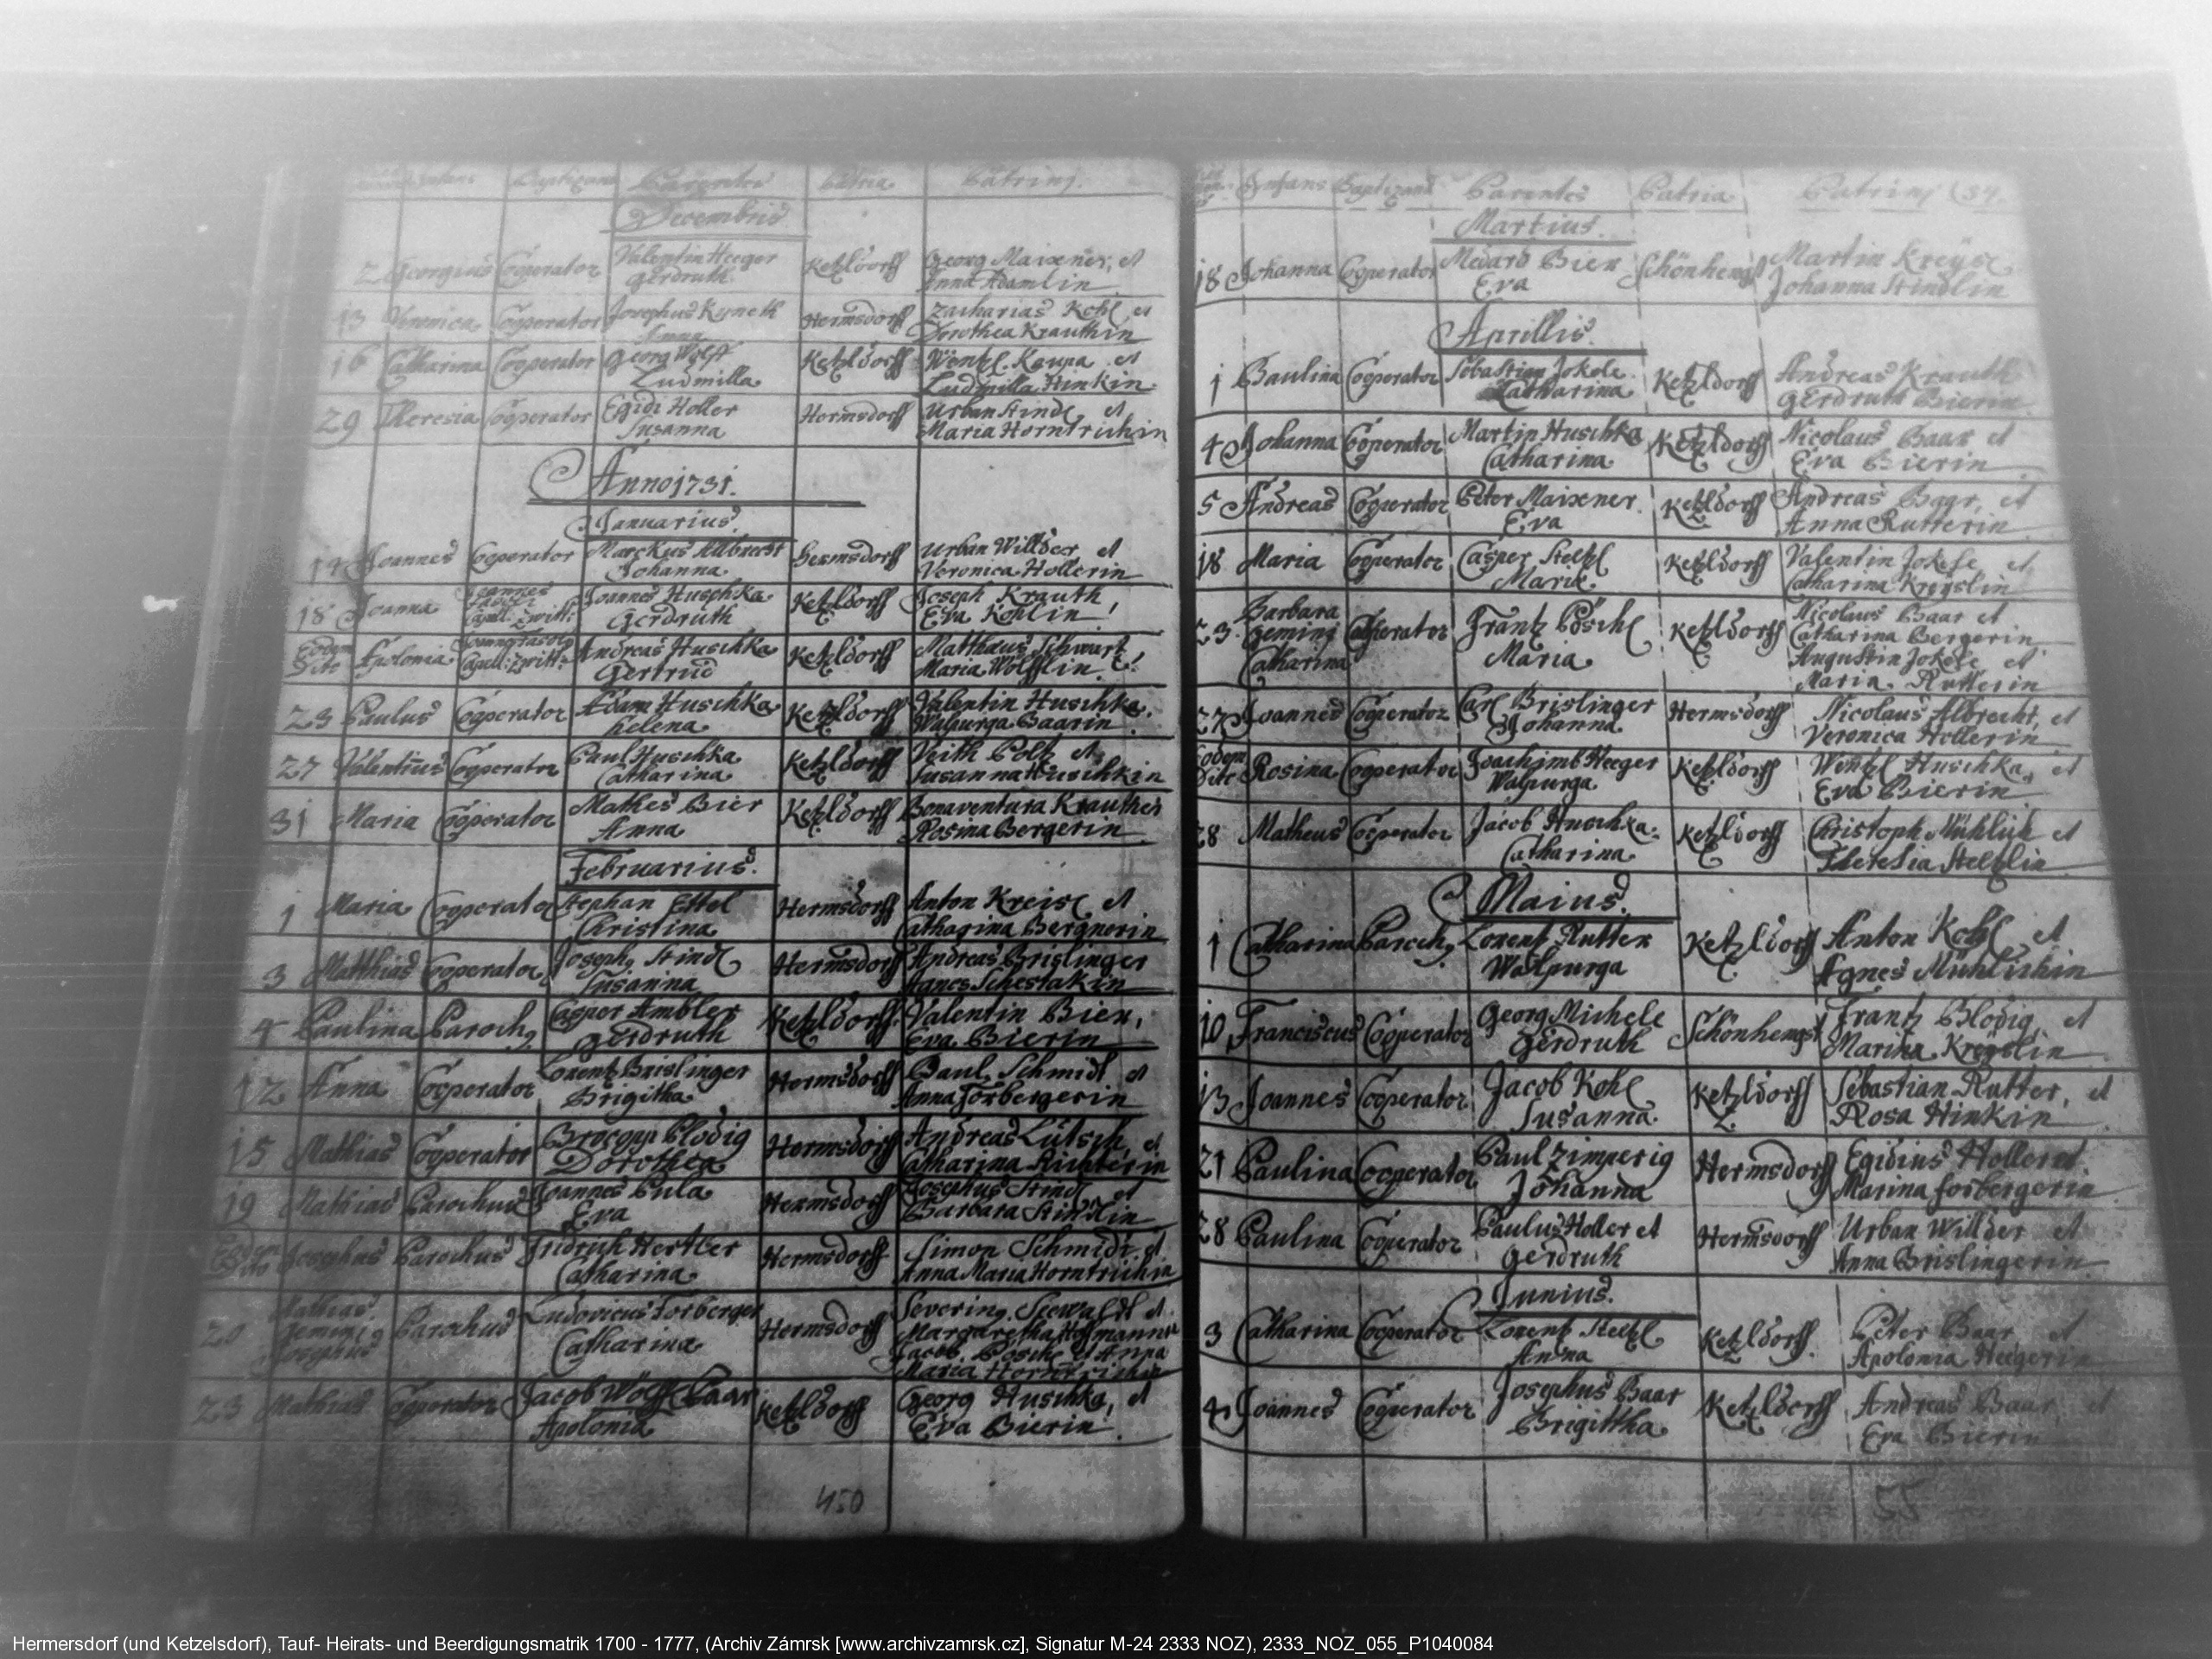 Infans Baptizans Parentes Patria Patrini
Decembris
2 Georgius Cooperator Valentin Heeger Ketzldorff Georg Maixner, et
Gerdruth Anna Adamlin
13 Veronica Cooperator Josephus Kyneth Hermsdorff Zacharias Kohl et
Anna Dorothea Krauthin
16 Catharina Cooperator Georg Wölff Ketzldorff Wentzl Kaupa et
Ludmilla Ludmilla Hinkin
29 Theresia Cooperator Egidi Holler Hermsdorff Urban Stindl et
Susanna Maria Horntrichin
Anno 1731.
Januarius.
Joannes Cooperator Marckus Albrecht Hermsdorff Urban Willder et
Johanna Veronica Hollerin
18 Joanna Joannes Joannes Huschka Ketzldorff Joseph Krauth
Capell: Zwitt: Gerdruth Eva Kohlin
Eodem Dito Apolonia Capell: Zwitt: Andreas Huschka Ketzldorff Matthæus Schwartz
Gertrud Maria Wölfflin
23 Paulus Cooperator Adam Huschka Ketzldorff Valentin Huschka
Helena Walpurga Baarin
27 Valentinus Cooperator Paul Huschka Ketzldorff Veith Poltz et
Catharina Susanna Huschkin
31 Maria Cooperator Mathes Bier Ketzldorff Bonaventura Krauthes
Anna Rosina Bergerin
Februarius.
1 Maria Cooperator Stephan Ettel Hermsdorff Anton Kreisl et
Christina Catharina Bergnerin
3 Matthias Cooperator Joseph Stindl Hermsdorff Andreas Brislinger
Susanna Agnes Schestakin
4 Paulina Paroch9 Casper Ambler Ketzldorff Valentin Bier,
Gerdruth Eva Bierin
12 Anna Cooperator Lorentz Brislinger Hermsdorff Paul Schmidt et
Brigitha Anna Forbergerin
15 Mathias Cooperator Brocopp Blodig Hermsdorff Andreas Lütsch, et
Dorothea Catharina Richterin
19 Mathias Parochus Joannes Pula Hermsdorff Josephus Stindl et
Eva Barbara Stindlin
Eodem Dito Josephus Parochus Fridrich Hertler Hermsdorff Simon Schmidt, et
Catharina Anna Maria Horntrichin
20 Mathias Gemini Josephus Parochus Ludovicus Forberger Hermsdorff Severin9 Seewaldt et
Catharina Margaretha Hoffmannin
Jacob Poschl et Anna
Maria Horntrichin
23 Mathias Cooperator Jacob Wölffl Baar Ketzldorff Georg Huschka, et
Apolonia Eva Bierin
450
Infans Baptizans Parentes Patria Patrini 54.
Martius.
18 Johanna Cooperator Medard Bier Schönhengst Martin Kreysl
Eva Johanna Stindlin
Aprillis.
1 Paulina Cooperator Sebastian Jokele Ketzldorff Andreas Krauth
Catharina Gerdruth Bierin
4 Johanna Cooperator Martin Huschka Ketzldorff Nicolaus Baar et
Catharina Eva Bierin
5 Andreas Cooperator Peter Maixener Ketzldorff Andreas Baar, et
Eva Anna Rutterin
18 Maria Cooperator Casper Steltzl Ketzldorff Valentin Jokele et
Marie Catharina Kreyslin
23. Barbara Gemini Catharina Cooperator Frantz Pöschl Ketzldorff Nicolaus Baar et
Maria Catharina Bergerin
Augustin Jokele et
Maria Rutterin
27 Joannes Cooperator Carl Brislinger Hermsdorff Nicolaus Albrecht, et
Johanna Veronica Hollerin
Eodem Dito Rosina Cooperator Joachimb Heeger Ketzldorff Wentzl Huschka, et
Walpurga Eva Bierin
28 Matheus Cooperator Jacob Huschka Ketzldorff Christoph Mühlich et
Catharina Theresia Steltzlin
Maius.
1 Catharina Paroch9 Lorentz Rutter Ketzldorff Anton Kohl et
Walpurga Agnes Mühlichin
10 Franciscus Cooperator Georg Michele Schönhengst Frantz Blodig, et
Gerdruth Marina Kreyslin
13 Joannes Cooperator Jacob Kohl Ketzldorff Sebastian Rutter, et
Susanna Rosa Hinkin
21 Paulina Cooperator Paul Zimperig Hermsdorff Egidius Holler et
Johanna Marina Forbergerin
28 Paulina Cooperator Paulus Holler et Hermsdorff Urban Willder et
Gerdruth Anna Brislingerin
Junius.
3 Catharina Cooperator Lorentz Steltzl Ketzldorff. Peter Baar et
Anna Apolonia Heegerin
4 Joannes Cooperator Josephus Baar Ketzldorff Andreas Baar, et
Brigittha Eva Bierin
55
Hermersdorf (und Ketzelsdorf), Tauf- Heirats- und Beerdigungsmatrik 1700 - 1777, (Archiv Zámrsk [www.archivzamrsk.cz], Signatur M-24 2333 NOZ), 2333_NOZ_055_P1040084